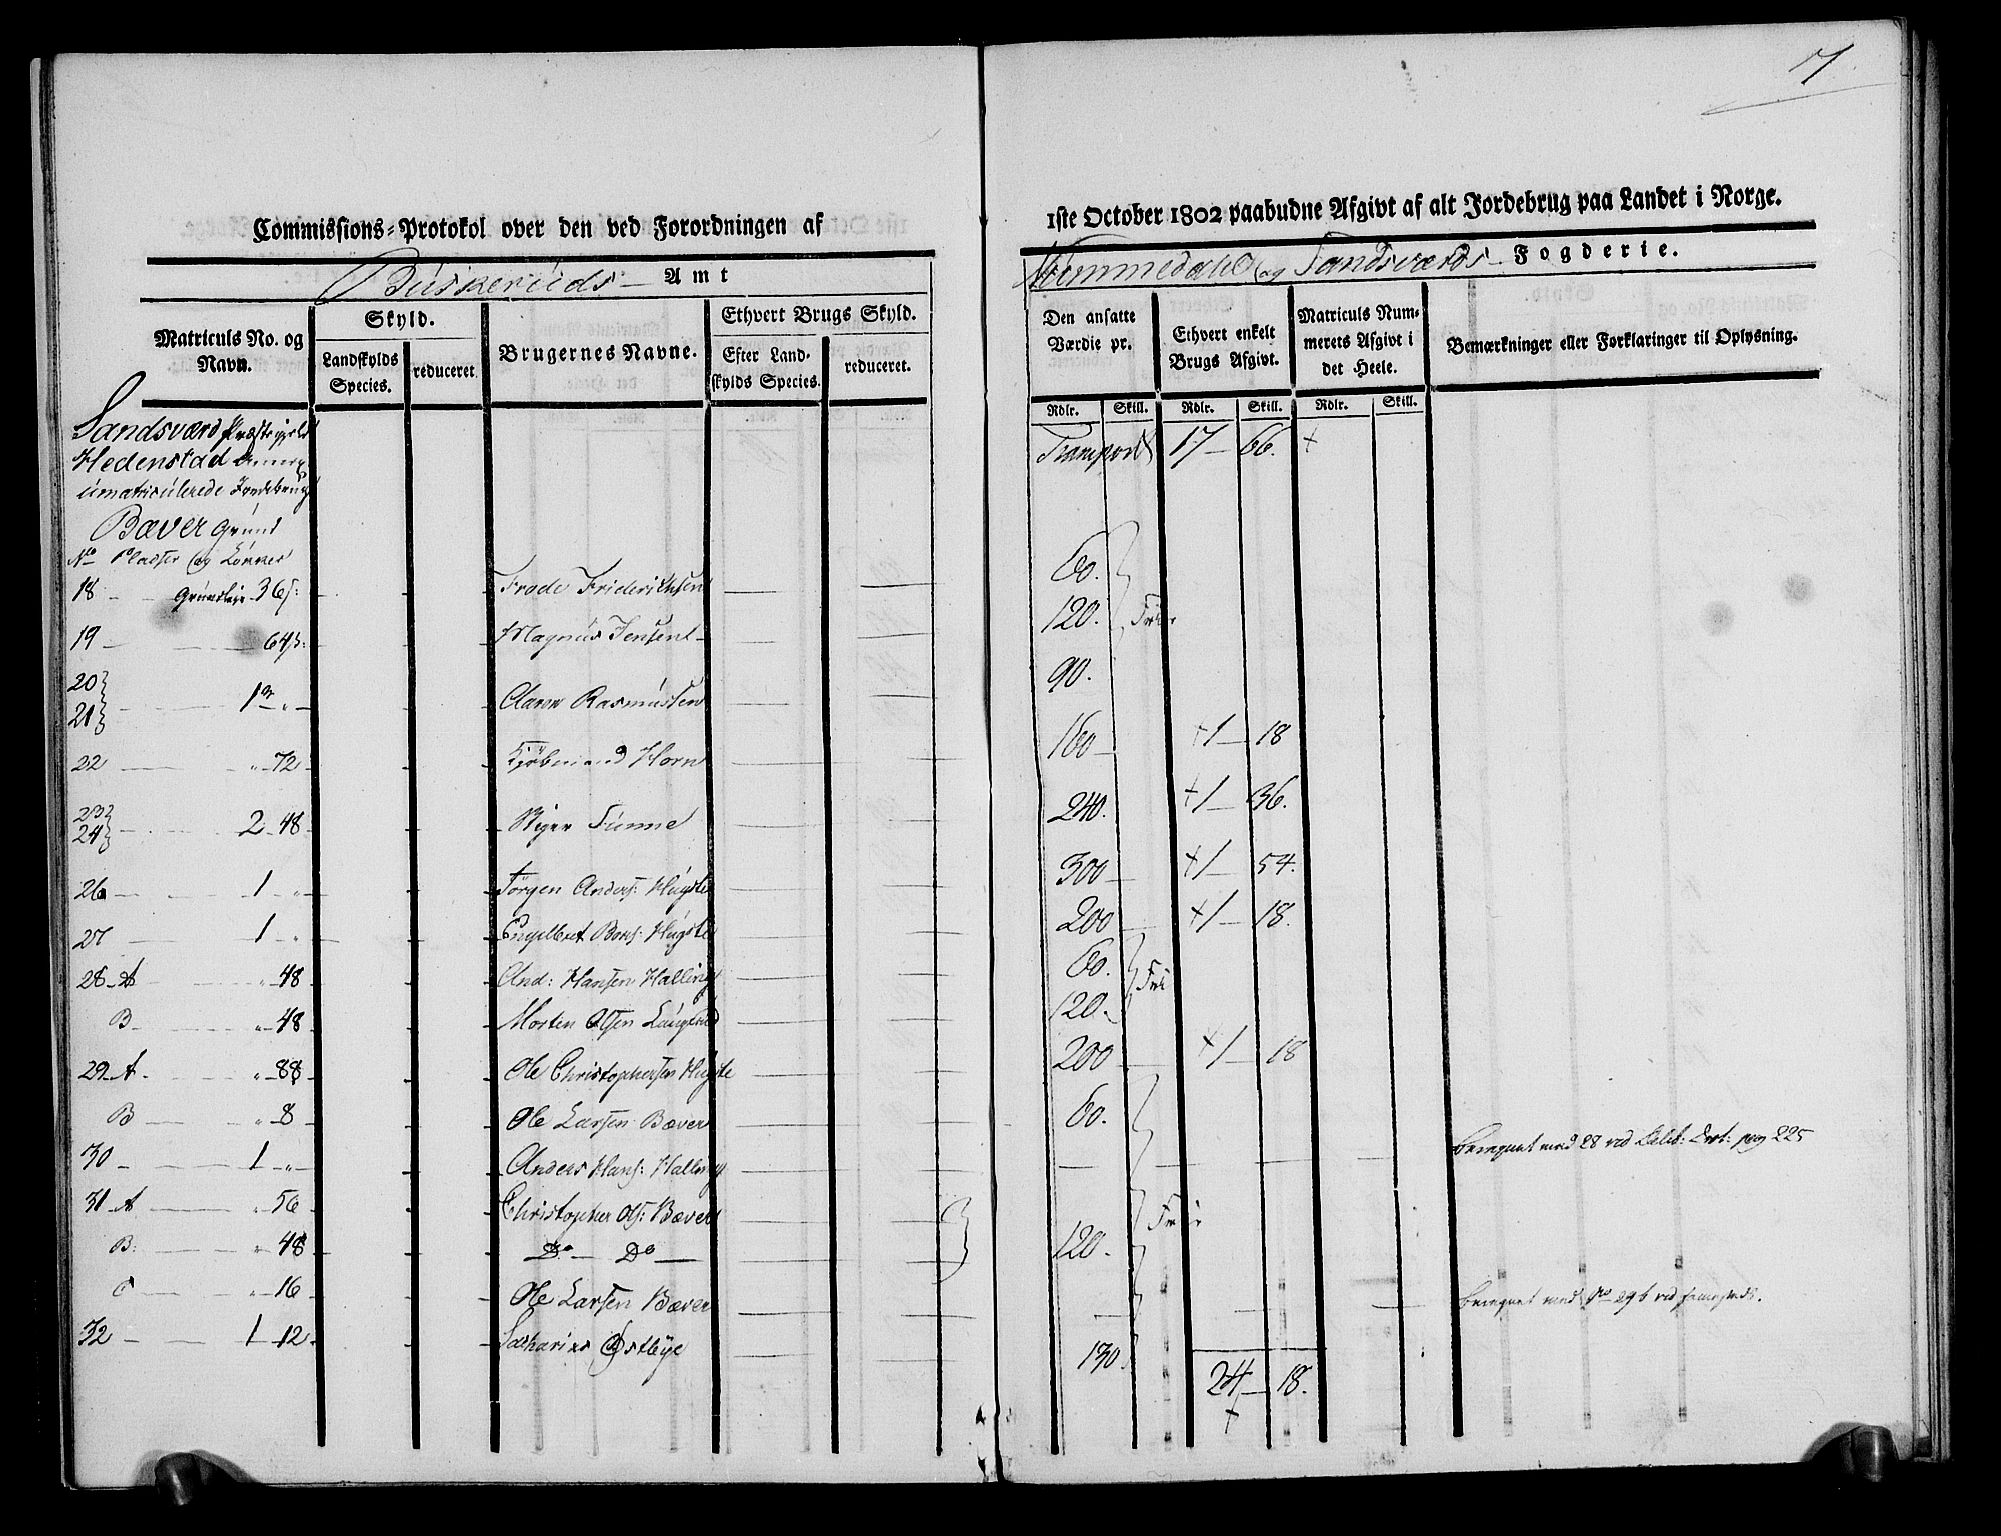 7
Commissions-Protokol over den ved Forordningen af
1ste October 1802 paabudne Afgivt af alt Jordebrug paa Landet i Norge.
Buskeruds Amt
Nummedahl og Sandsværds Fogderie.
Matriculs No. og Navn.
Skyld.
Landskylds Species.
reduceret.
Brugernes Navne.
Ethvert Brugs Skyld.
Efter Landskylds Species.
reduceret.
Den ansatte Værdie pr.
Ethvert enkelt Brugs Afgivt.
Matriculs Nummerets Afgivt i det Heele.
Bemærkninger eller Forklaringer til Oplysning.
Rdlr. Skill. Rdlr. Skill. Rdlr. Skill.
Sandsværd Præstegjeld
Hedenstad Annex
umatriculerede Jordebrug
Transport 17 66.
Bæver Grund
No Pladser og Løkker
18 Grundleje 36 Frode Friderichsen 60.
19 64 Magnus Jensen 120. Frie
20 21 1 Aaron Rasmussen 90.
22 72 Kjøbmand Horn 160 1 18
23 24 2 48 Sunne 240. 1 36.
26 1 Jørgen Anders: Hugste 300 1 54.
27 1 Engelbret Hugste 200 1 18.
28 A 48 And: Hansen Halling 60. Fri
B 48 Morten Olsen 120.
29 A 88 Ole Christophersen Hugste 200 1 18
B 8 Ole Larsen Bæver 60.
30 1 Anders Hans: Halling beregnet med 28 ved pag 225
31 A 56 Christopher Ols: Bæver Frie
B: 48 Do Do 120.
C 16 Ole Larsen Bæver beregnet med No 29 b ved
32 1 12 Sacharias Østbye 130.
24 18.